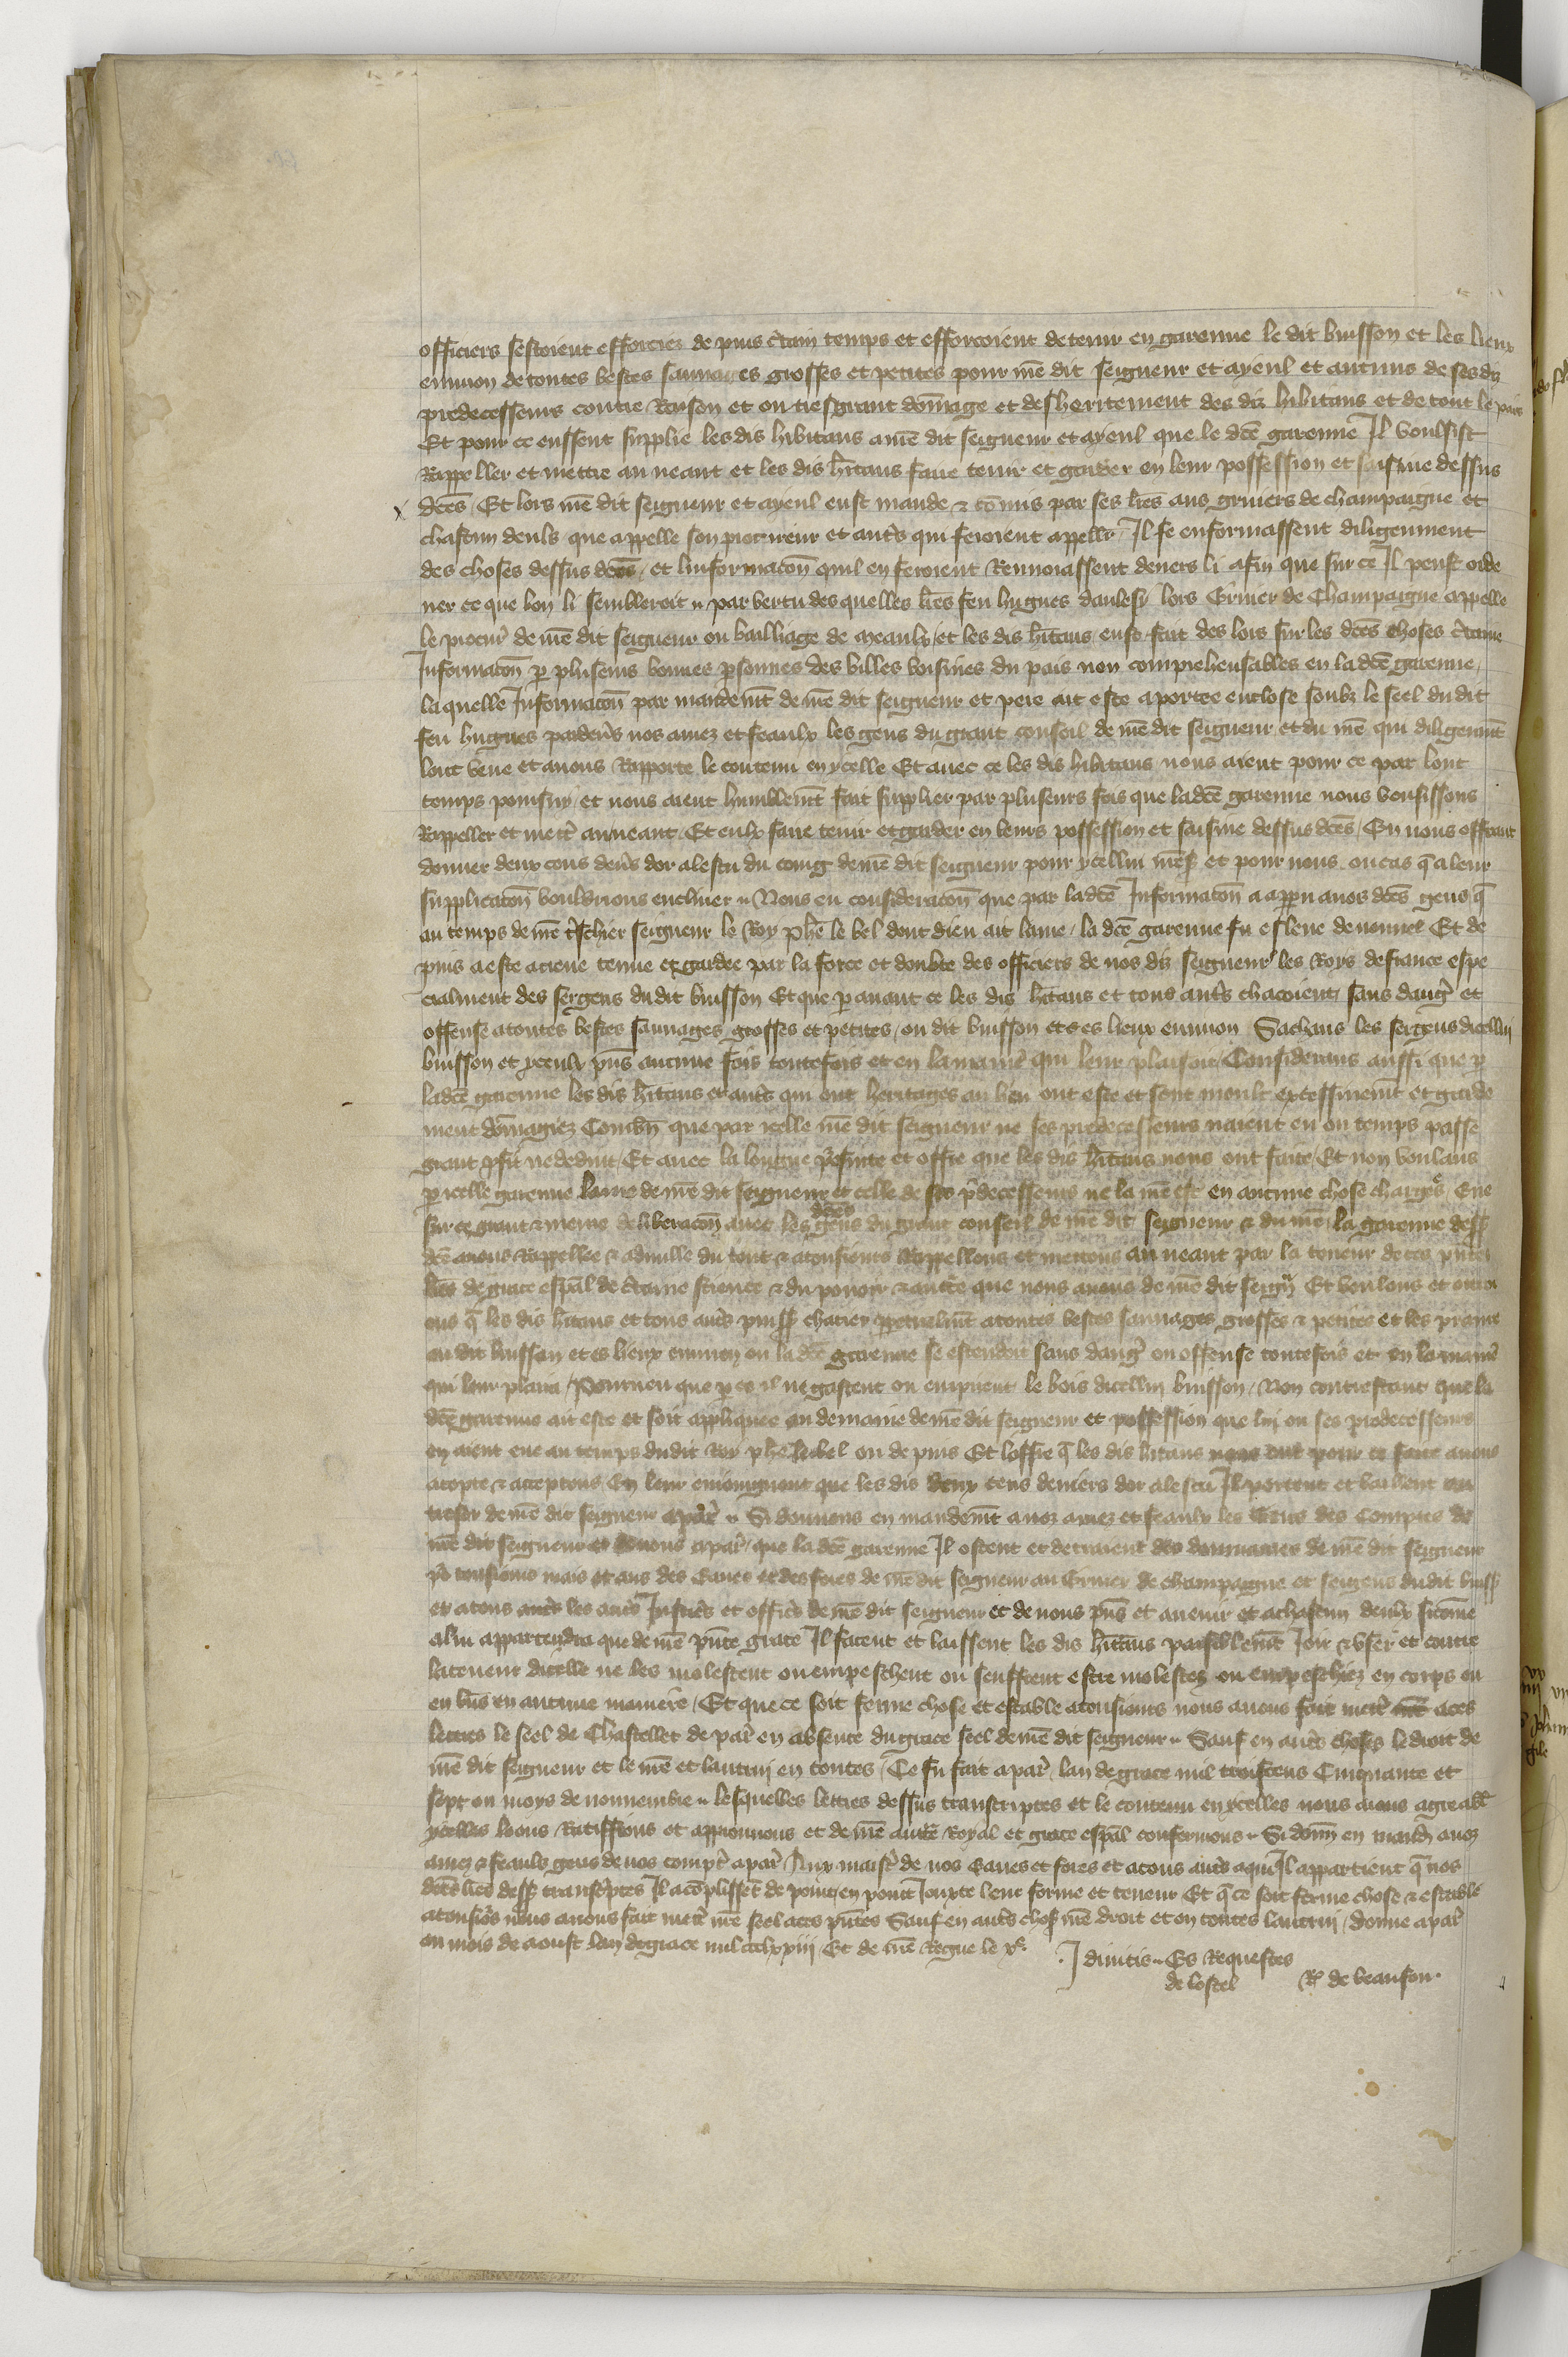 officiers sestoient efforciez de puis c̄tain temps et efforcoient de tenir en garenne le dit buisson et les lieux
enuiron de toutes bestes sauuages grosses et petites pour n̄re dit seigneur et ayeul et aucuns de ses diz
predecesseurs contre Raison et ou tresgrant dom̄age et desheritement des diz h̄bitans et de tout le pais
Et pour ce eussent supplie les dis h̄bitans a n̄re dit seigneur et ayeul que le dc̄e garenne Il voulsist
Rappeller et mettre au neant et les dis h̄itans faire tenir et garder en leur possession et saisine dessus
dc̄es / Et lors n̄re dit seigneur et ayeul eust mande & com̄is par ses lr̄es aus gruiers de champaigne et
chascun deuls que appelle son procureur et aut̄s qui feroient appeller Il se enformassent diligenment
des choses dessus dc̄es / et linformacon̄ quil en feroient Renuoiassent deuers li afin que sur ce Il peust orde
ner ce que bon li sembleroit par vertu des quelles lr̄es feu hugues danlesy lors Gruier de Champaigne appelle
le procur̄ de n̄re dit seigneur ou bailliage de meaulx / et les dis h̄itans eust fait des lors sur les dc̄es choses c̄taine
Informacon̄ p̄ pluseurs bonnes p̄sonnes des villes voisines du pais non comprehensables en ladc̄e garenne /
la quelle Informacon̄ par mandem̄t de n̄re dit seigneur et pere ait este aportee enclose soubz le seel du dit
feu hugues pardeūs nos amez et feaulx les gens du grant conseil de n̄re dit seigneur et du n̄re qui diligenm̄t
lont veue et a nous Rapporte le contenu en ycelle Et auec ce les dis h̄bitans nous aient pour ce par lonc
temps poursuy / et nous aient humblem̄t fait supplier par pluseurs fois que ladc̄e garenne nous voulsissons
Rappeller et mett̄ au neant Et eulx faire tenir et garder en leurs possession et saisine dessus dc̄es / En nous offrant
donner deux cens deñs dor a lescu du coing de n̄re dit seigneur pour ycellui mes̄ et pour nous ou cas q̄ a leur
supplicacon̄ vouldrions encliner Nous eu consideracon̄ que par ladc̄e Informacon̄ a appru a nos dc̄es gens q̄
au temps de n̄re t̄schier seigneur le Roy ph̄e le bel dont dieu ait lame / la dc̄e garenne fu esleue de nouuel Et de
puis a este a ciene tenue et gardee par la force et doubte des officiers de nos diz seigneurs les Roys de france espe
cialment des sergens du dit buisson Et que p̄auant ce les dis h̄itans et tous aut̄s chacoient sans dang̃ et
offense a toutes bestes sauuages grosses et petites / ou dit buisson et es lieux enuiron Sachans les sergens dicellui
buisson et yceulx p̄ns aucune fois toutefois et en la manie qui leur plaisoit / Considerans aussi que p̄
ladc̄e garenne les dis h̄itans et aut̄s qui ont heritages au lieu ont este et sont moult excessiuem̄t et grade
ment dom̄agiez Combn̄ que par icelle n̄re dit seigneur ne ses predecesseurs naient eu ou temps passe
grant p̄fit ne deduit / Et auec la longue p̄suite et offre que les dis h̄itans nous ont faite / Et non voulans
p̄ icelle garenne lame de n̄re dit seigneur et celle de ses p̄decesseurs ne la n̄re est en aucune chose charges / Eue
sur ce grant & meure deliberacon̄ auec les dc̄es gens du grant conseil de n̄re dit seigneur & du n̄re la garenne dess̄
dc̄e auons Rappellee & adnulle du tout & a tousiours Rappellons et mettons au neant par la teneur de ces p̄ntes
lr̄es de grace esp̄al de c̄taine science & du pouoir & aut̄te que nous auons de n̄re dit seign̄ Et voulons et ottroi
ons q̄ les dis h̄itans et tous aut̄s puiss̄ chacier p̄petuelm̄t a toutes bestes sauuages grosses & petites et les prenre
ou dit buisson et es lieux enuiron ou la dc̄e garenne se estendoit sans dang̃ ou offense toutefois et en la manie
qui leur plaira / Pourueu que p̄ ce il ne gastent ou empirent le bois dicellui buisson / Non contrestant que la
dc̄e garenne ait este et soit appliquee au demaine de n̄re dit seigneur et possession que lui ou ses predecesseurs
en aient eue au temps du dit Roy ph̄e le bel ou de puis Et loffre q̄ les dis h̄itans nous ont pour ce faite auons
accepte & acceptons En leur enioignant que les dis deux cens deniers dor a lescu Il portent et baillent au
tresor de n̄re dit seigneur a par̄ Si donnons en mandem̄t a noz amez et feaulx les gens des Comptes de
n̄re dit seigneur et a par̄ / que la dc̄e garenne Il ostent et detraient des demaines de n̄re dit seigneur
p̄ tousiours mais et aus des Eaues et des fores de n̄re dit seigneur au Gruier de champaigne et sergens du dit buiss̄
et a tous aut̄s les aut̄s Justic̄s et offic̄s de n̄re dit seigneur et de nous p̄ns et auenir et a chascun deulx sicom̄e
a lui appartendra que de n̄re p̄nte grace Il facent et laissent les dis h̄itans paisiblem̄t Joir & vser et contre
la teneur dicelle ne les molestent ou empeschent ou seuffrent estre molestez ou empeschiez en corps ou
en biēs en aucune maniere / Et que ce soit ferme chose et estable a tousiours nous auons fait mett̄ a ces
lettres le seel de Chastellet de par̄ en absence du grant seel de n̄re dit seigneur Sauf en aut̄s choses le droit de
n̄re dit seigneur et le n̄re et lautrui en toutes / Ce fu fait a par̄ lan de grace mil troiscens Cinquante et
sept ou moys de nouuembre lesquelles lettres dessus transcriptes et le contenu en ycelles nous aians agreabl̄
ycelles loons Ratiffions et approuuons et de n̄re auct̄e Royal et grace esp̄al confermons Si donn̄ en mand̄ a noz
amez & feaulx gens de nos compt̄ a par̄ Aux maist̄ de nos Eaues et fores et a tous aut̄s a qui Il appartient q̄ nos
dc̄es lr̄es dess̄ transc̄ptes Il acomplissēt de point en point Jouxte leur forme et teneur Et q̄ ce soit ferme chose & estable
a tousiōs nous auons fait mett̄ n̄re seel a ces p̄ntes Sauf en aut̄s chos̄ n̄re droit et en toutes lautrui / donne a par̄
ou mois de aoust lan de grace mil ccclxxiij Et de n̄re Regne le x̄e
. J diuitis Es Requestes
de lostel R̄ de beaufou.